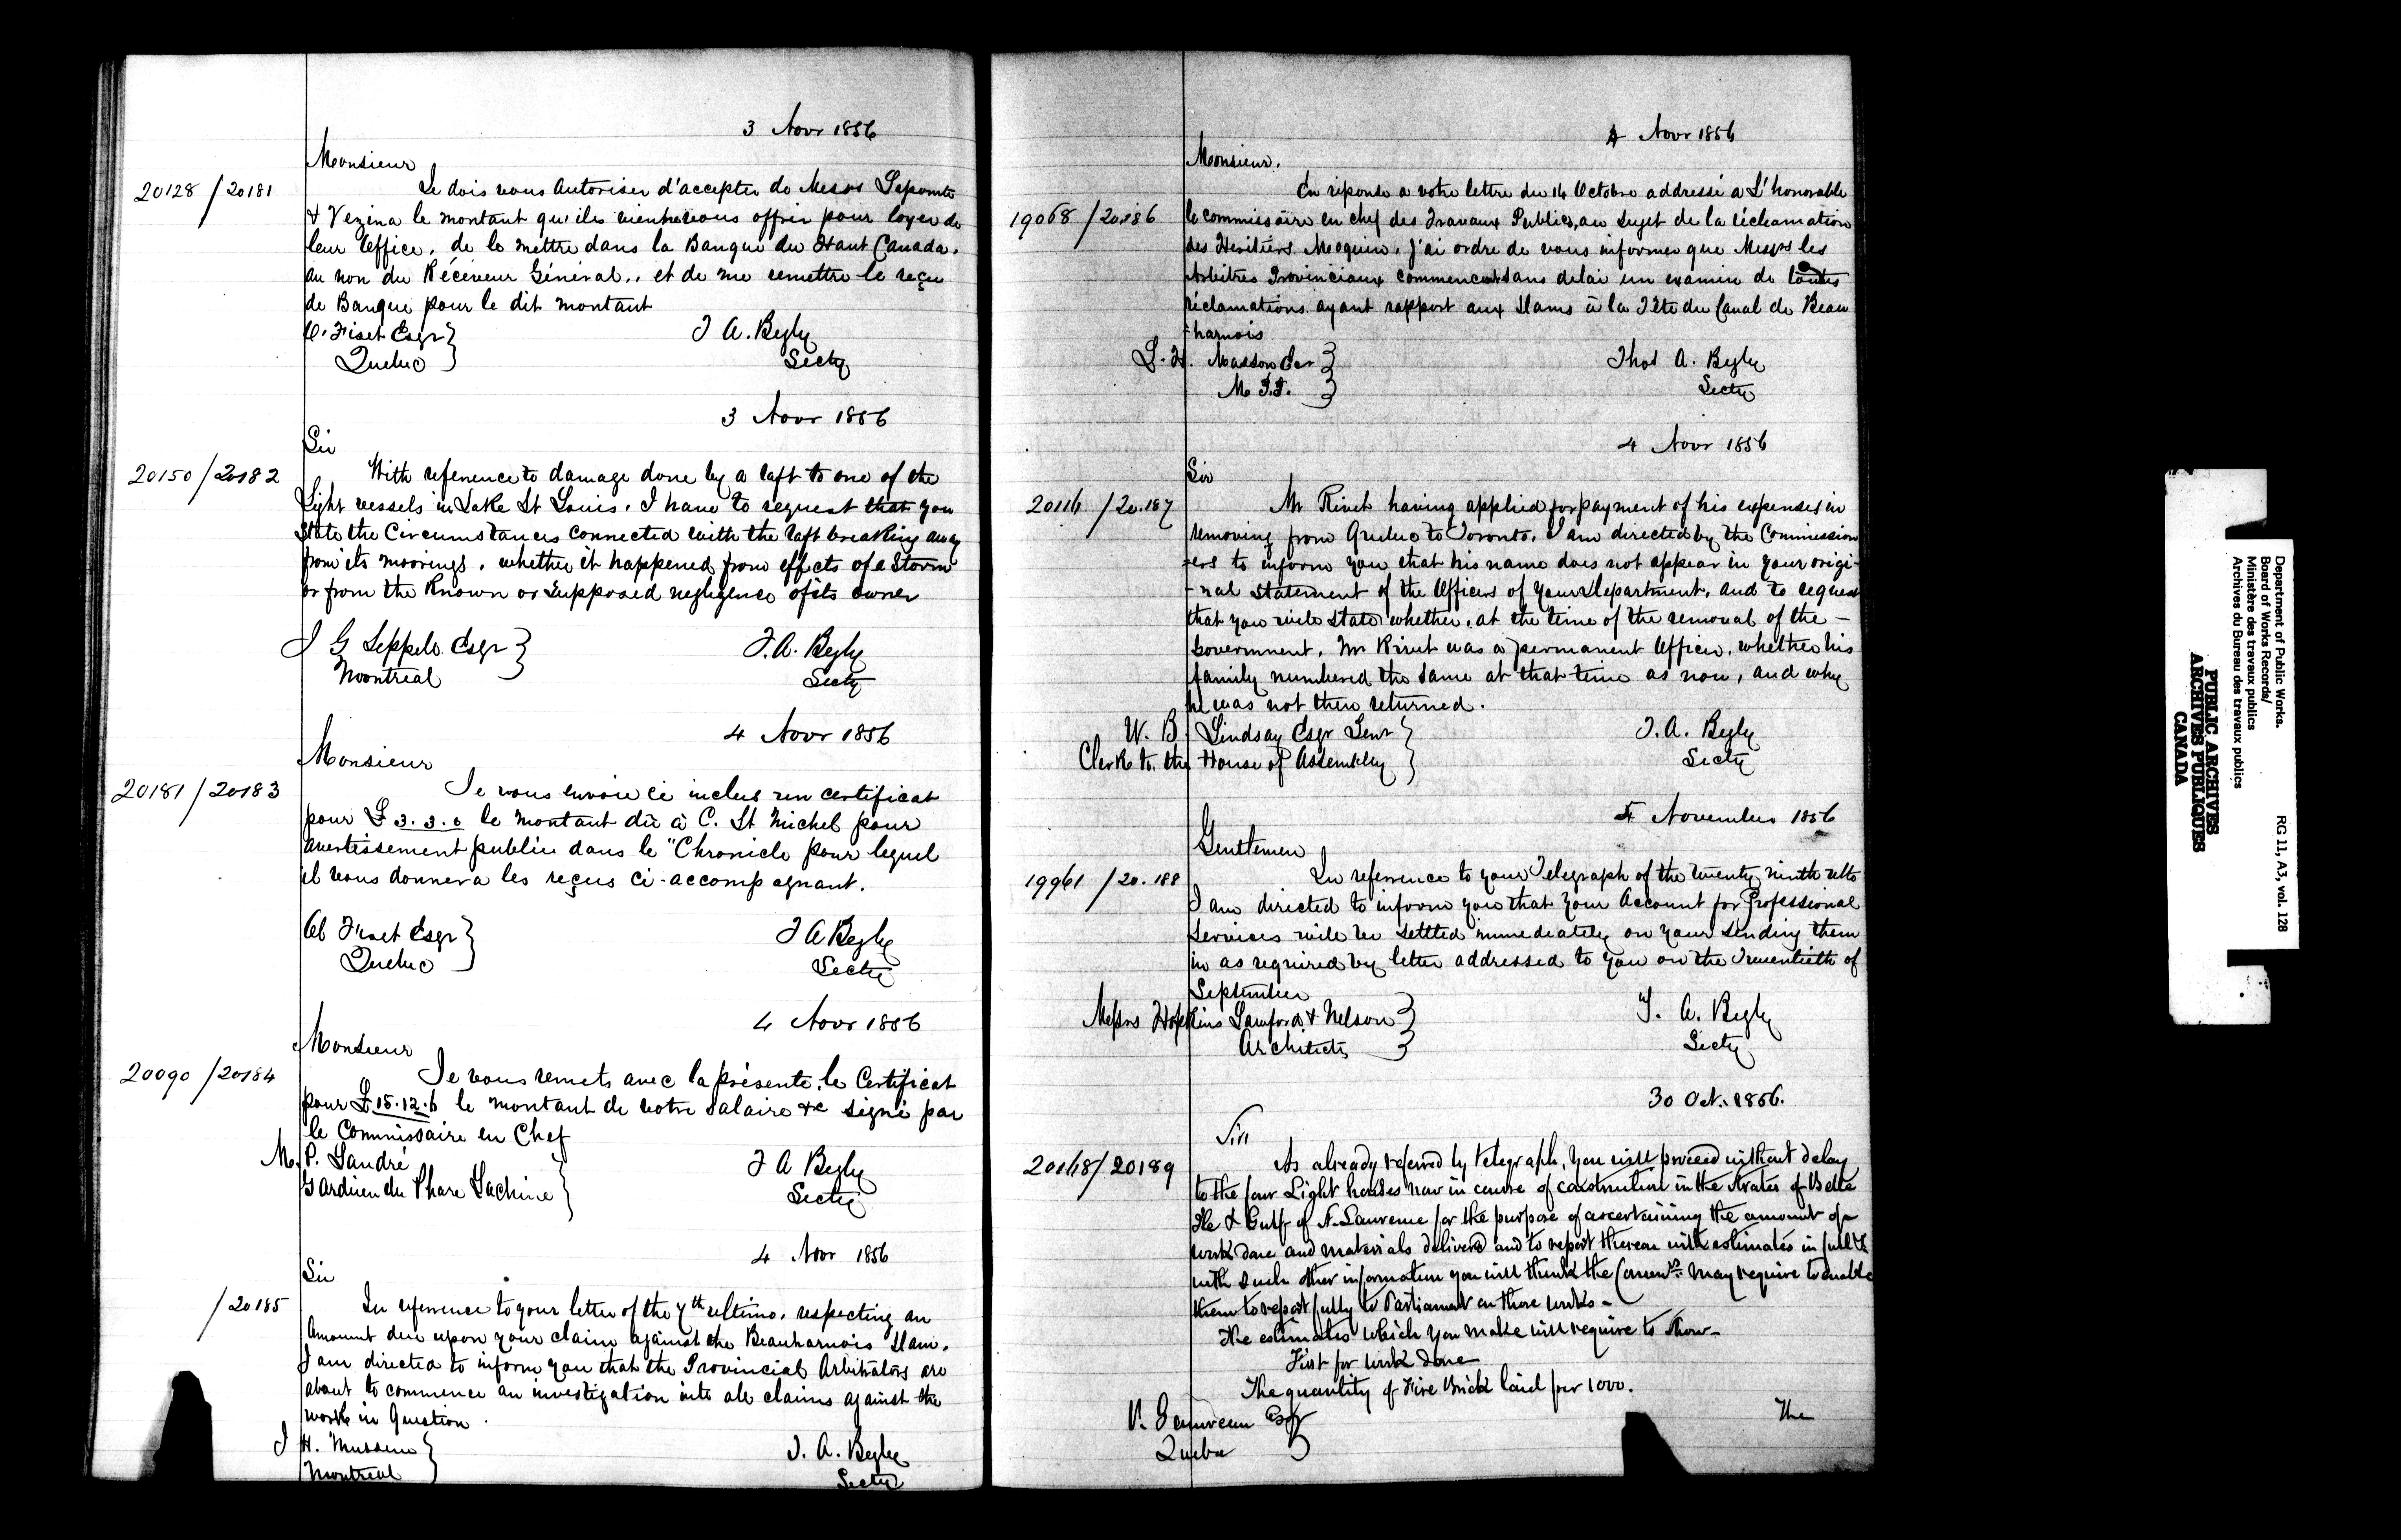 3 Novr 1856
Monsieur
20128 / 20181
Je dois vous autoriser d'accepter de Messrs Lepointe
& Vezina le montant qu'ils viendrevous offrir pour loyer de
leur Office, de le mettre dans la Banque du Haut Canada,
au nom du Réceveur Général, et de me remettre le reçu
de Banque pour le dit montant
O. Fiset Esqr
Quebec
T A. Begly
Secty
3 Novr 1856
Sir
20150 / 20182
With reference to damage done by a raft to one of the
Light vessels in Lake St Louis, I have to request that you
State the Circumstances connected with the raft breaking away
from its moorings, whether it happened from effects of a Storm
or from the Known or Supposed negligence of its owner
J G Sippele Esqr
Montreal
T. A. Begly
Secty
4 Novr 1856
Monsieur
20181 / 20183
Je vous envoie ci inclus un certificat
pour £ 3.3.6 le montant dû à C. St Michel pour
avertissement publiée dans le "Chronicle pour lequel
il vous donnera les reçus ci-accompagnant.
Ol Fiset Esqr
Quebec
T A Begly
Secty
4 Novr 1856
Monsieur
20090 / 20184
Je vous remets avec la présente, le Certificat
pour £ 15.12.6 le montant de votre Salaire &c signé par
le Commissaire en Chef
M. P. Landré
Gardien du Phare Lachine
T A Begly
Secty
4 Novr 1856
Sir
/ 20185
In reference to your letter of the 7th ultimo, respecting an
amount due upon your claim against the Beauharnois Dam,
I am directed to inform you that the Provincial Arbitrators are
about to commence an investigation into all claims against the
work in Question.
J H. Masson
Montreal
T. A. Begly
Secty
4 Novr 1856
Monsieur.
19068 / 20.186
En réponse a votre lettre du 14 Octobre addressé a L'honorable
le commissaire en chef des Travaux Publics, au sujet de la réclamation
des Heritiers Moquin, j'ai ordre de vous informer que Messrs les
Arbitres Provinciaux commencent sans delai un examen de toutes
réclamations ayant rapport aux Dams à la Tête du Canal de Beau
-harnois
L. H. Masson Ecr
M P.P.
Thos A. Begly
Secty
4 Novr 1856
Sir
20116 / 20.187
Mr Rivet having applied for payment of his expenses in
removing from Quebec to Toronto, I am directed by the Commission
-ers to inform you that his name does not appear in your origi-
-nal statement of the Officers of your Department, and to request
that you will state whether, at the time of the removal of the -
Government, Mr Rivet was a permanent Officer, whether his
family numbered the same at that time as now, and why
he was not then returned.
W. B. Lindsay Esqr Senr
Clerk to the House of Assembly
T. A. Begly
Secty
4 November 1856
Gentlemen
19961 / 20.188
In reference to your Telegraph of the twenty ninth ulto
I am directed to inform you that your Account for Professional
Services will be settled immediately on your sending them
in as required by letter addressed to you on the Twentieth of
September
Messrs Hopkins Lawford & Nelson
Architects
T. A. Begly
Secty
30 Oct. 1856.
Sir
20168 / 20189
As already referred by telegraph, you will proceed without delay
to the four Light houses now in course of construction in the Straits of Belle
Ile & Gulf of St. Lawrence for the purpose of ascertaining the amount of
work done and materials delivered and to report thereon with estimates in full &
with such other information you will think the Commrs. may require to enable
them to report fully to Parliament on those works -
The estimates which you make will require to show -
First for work done
The quantity of Fire Brick laid per 1000.
V. Gauvreau Esqr
Quebec
The
Department of Public Works.
Board of Works Records/
Ministère des travaux publics
Archives du Bureau des travaux publics
RG 11, A3, vol. 128
PUBLIC ARCHIVES
ARCHIVES PUBLIQUES
CANADA